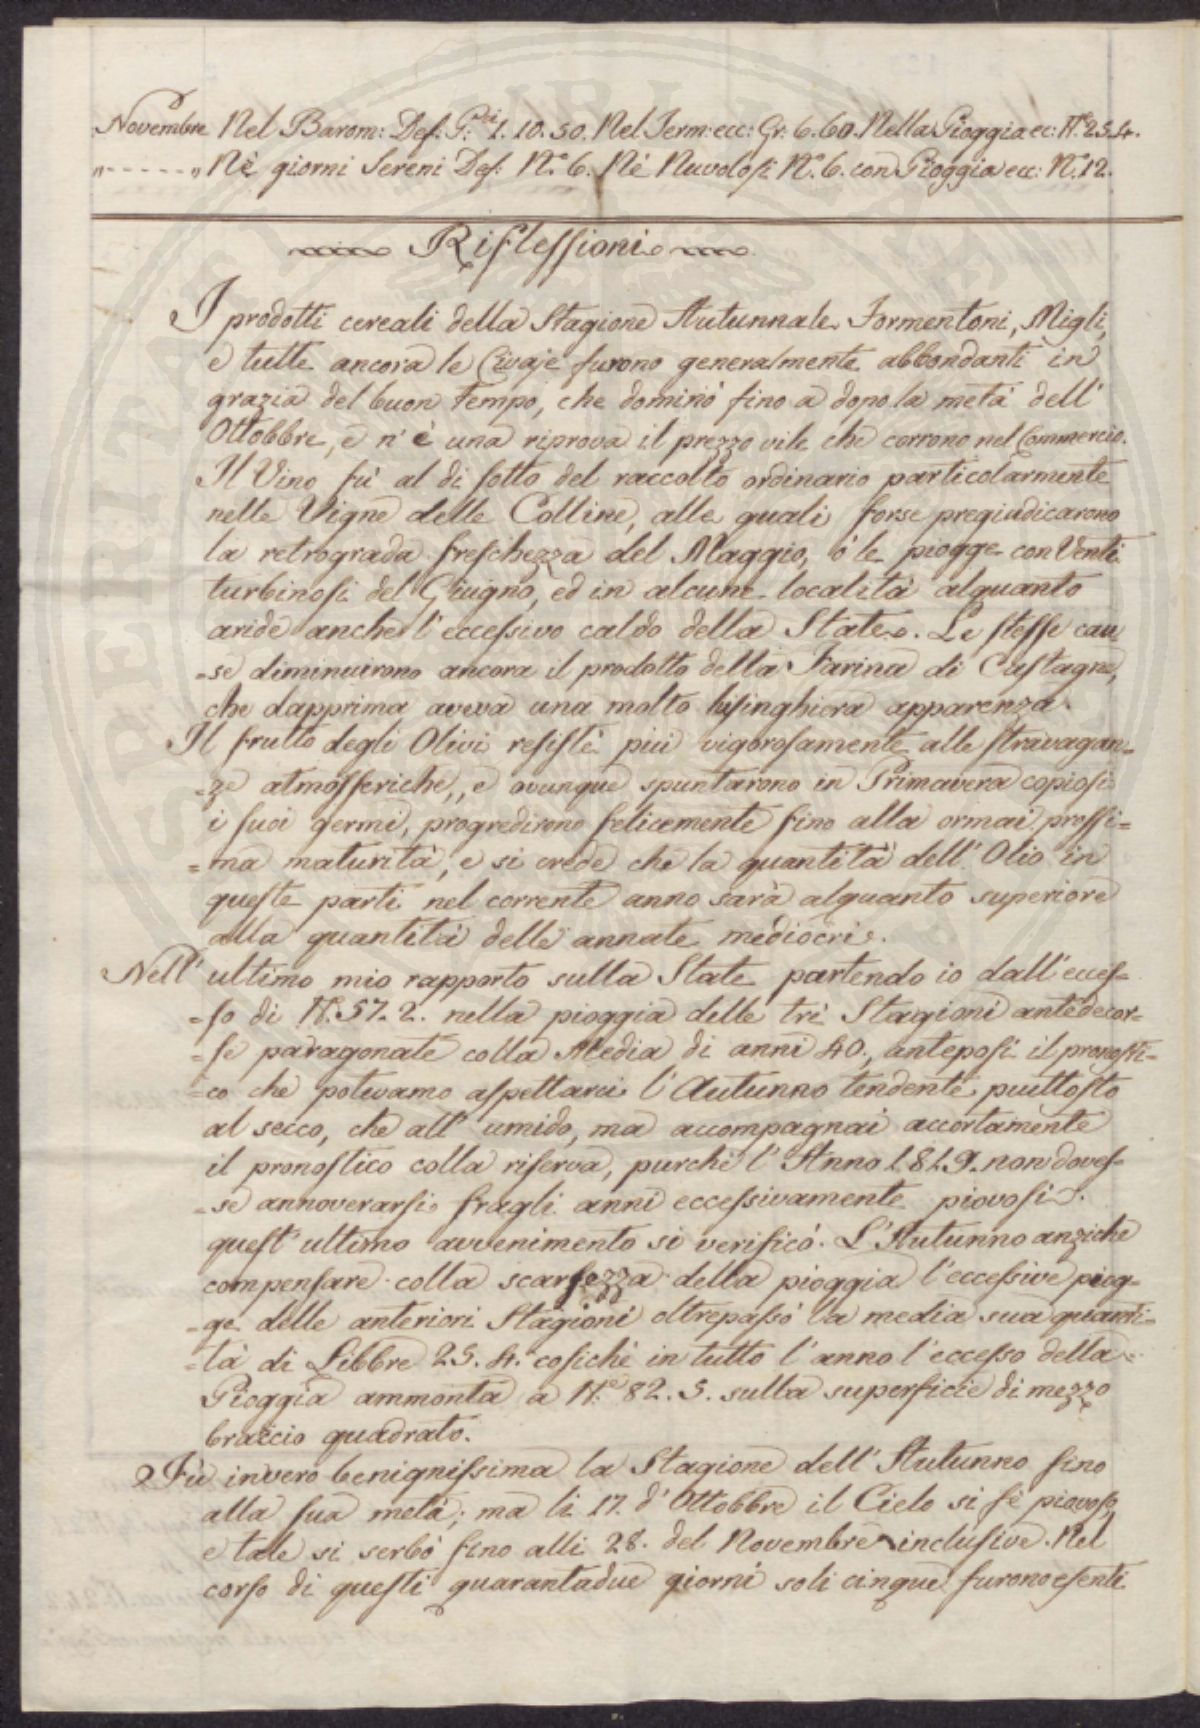 Novembre Nel Barom: Def. P:ci 1. 10. 50. Nel Term: ecc: Gr: 6. 60. Nella Pioggia ec: ℔ 25. 4.
„ - - - - - „ Nè giorni Sereni Def: N.° 6. Nè Nuvolosi N.° 6. con Pioggia ecc: N.° 12.
Riflessioni
I prodotti cereali della Stagione Autunnale Formentoni, Migli,
e tutte ancora le Civaje furono generalmente abbondanti in
grazia del buon tempo, che dominò fino a dopo la metà dell'
Ottobbre, e n'è una riprova il prezzo vile che corrono nel Commercio.
Il Vino fù al di sotto del raccolto ordinario particolarmente
nelle Vigne delle Colline, alle quali forse pregiudicarono
la retrograda freschezza del Maggio, ò le piogge con Venti
turbinosi del Giugno, ed in alcune località alquanto
aride anche l'eccessivo caldo della State. Le stesse cau
=se diminuirono ancora il prodotto della Farina di Castagne,
che dapprima aveva una molto lusinghiera apparenza.
Il frutto degli Olivi resistè più vigorosamente alle stravagan=
=ze atmosferiche, e ovunque spuntarono in Primavera copiosi
i suoi germi, progredirono felicemente fino alla ormai prossi=
=ma maturità, e si crede che la quantità dell'Olio in
queste parti nel corrente anno sarà alquanto superiore
alla quantità delle annate mediocri.
Nell'ultimo mio rapporto sulla State partendo io dall'ecces=
=so di ℔. 57. 2. nella pioggia delle trè Stagioni antedecor=
=se paragonate colla Media di anni 40., anteposi il pronosti=
=co che potevamo aspettarci l'Autunno tendente piuttosto
al secco, che all'umido, ma accompagnai accortamente
il pronostico colla riserva, purchè l'Anno 1819. non doves=
=se annoverarsi fragli anni eccessivamente piovosi.
quest'ultimo avvenimento si verificò. L'Autunno anziche
compensare colla scarsezza della pioggia l'eccessive piog=
=ge delle anteriori Stagioni oltrepassò la media sua quanti=
=tà di Libbre 25. 4. cosichè in tutto l'anno l'eccesso della
Pioggia ammonta a ℔.e 82. 5. sulla superficie di mezzo
braccio quadrato.
Fù invero benignissima la Stagione dell'Autunno fino
alla sua metà; ma li 17. d'Ottobbre il Cielo si fè piovoso,
e tale si serbò fino alli 28. del Novembre inclusive. Nel
corso di questi quarantadue giorni soli cinque furono esenti